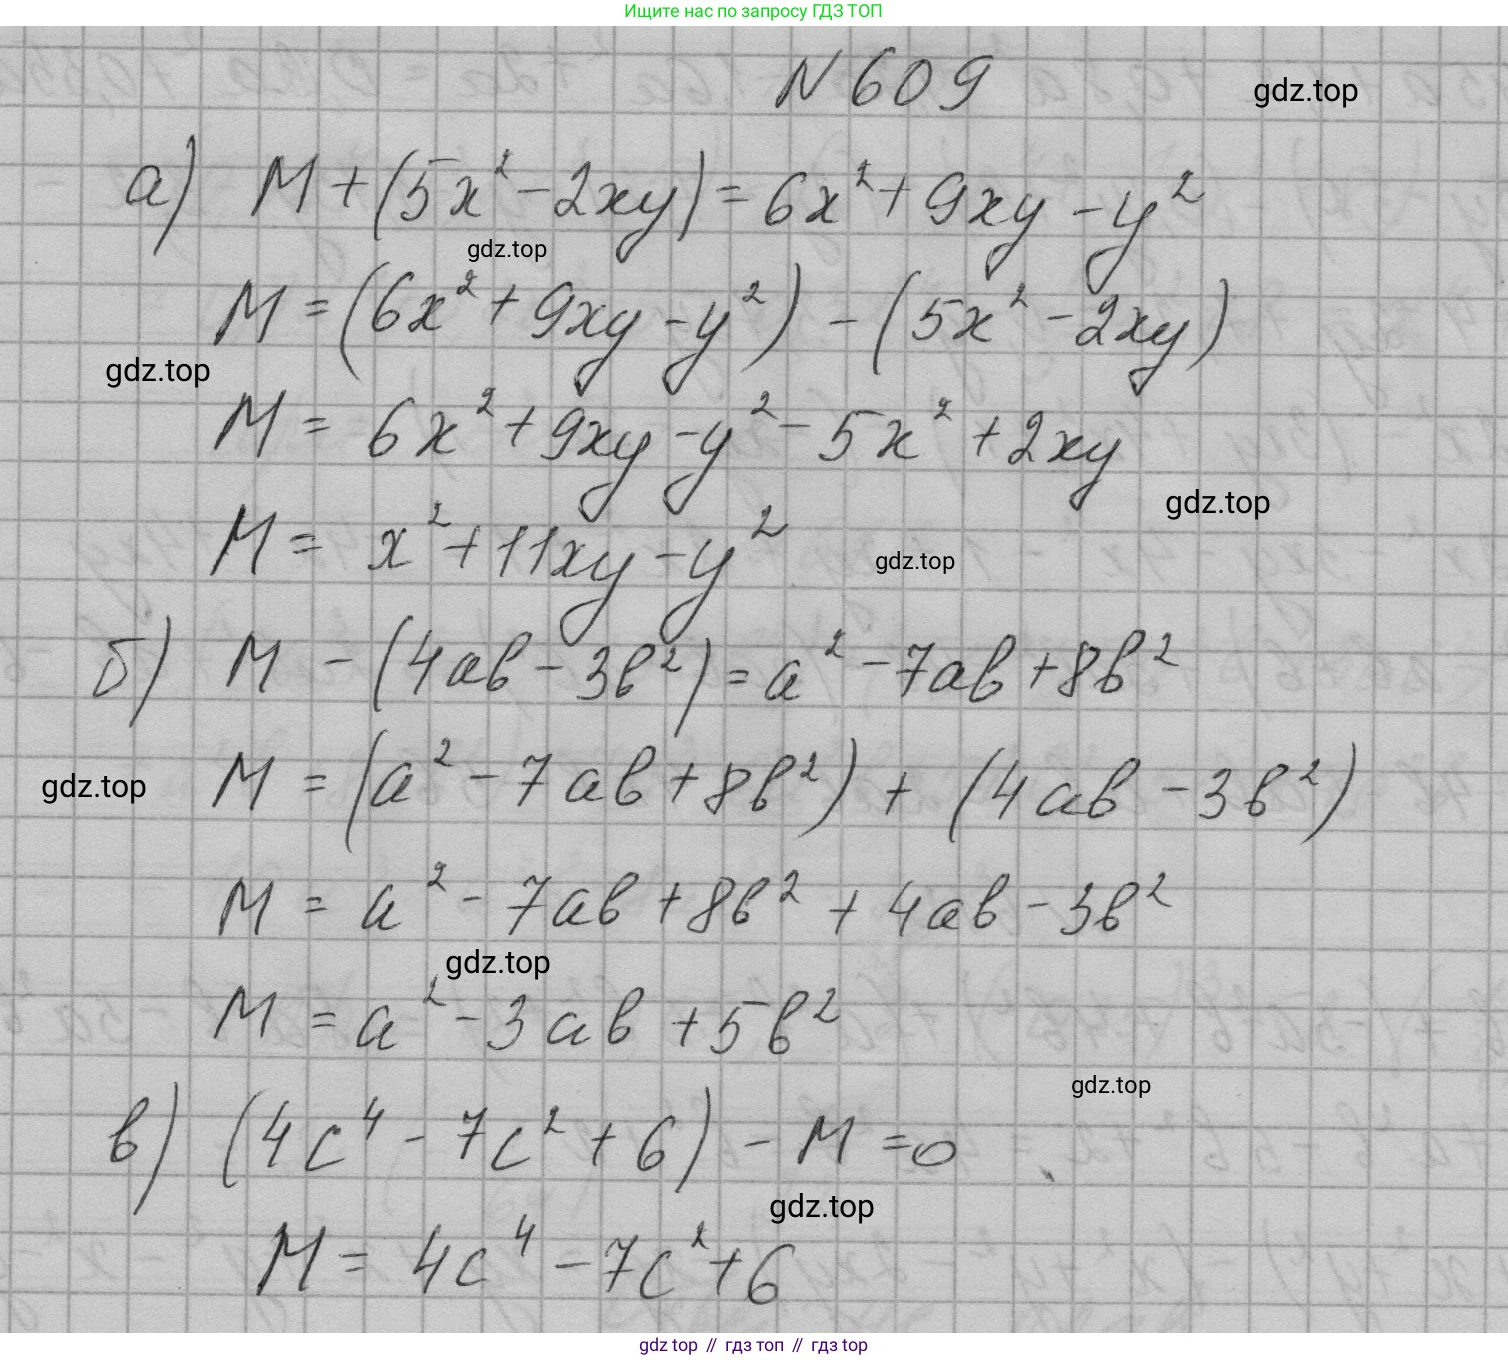 Ищите нас по запросу ГДЗ ТОП
N 609
gdz.top
а) M + (5x² - 2xy) = 6x² + 9xy - y²
gdz.top
M = (6x² + 9xy - y²) - (5x² - 2xy)
gdz.top
M = 6x² + 9xy - y² - 5x² + 2xy
gdz.top
M = x² + 11xy - y²
gdz.top
б) M - (4ab - 3b²) = a² - 7ab + 8b²
M = (a² - 7ab + 8b²) + (4ab - 3b²)
gdz.top
M = a² - 7ab + 8b² + 4ab - 3b²
gdz.top
M = a² - 3ab + 5b²
gdz.top
в) (4c⁴ - 7c² + 6) - M = 0
gdz.top
M = 4c⁴ - 7c² + 6
gdz top // гдз топ // gdz top